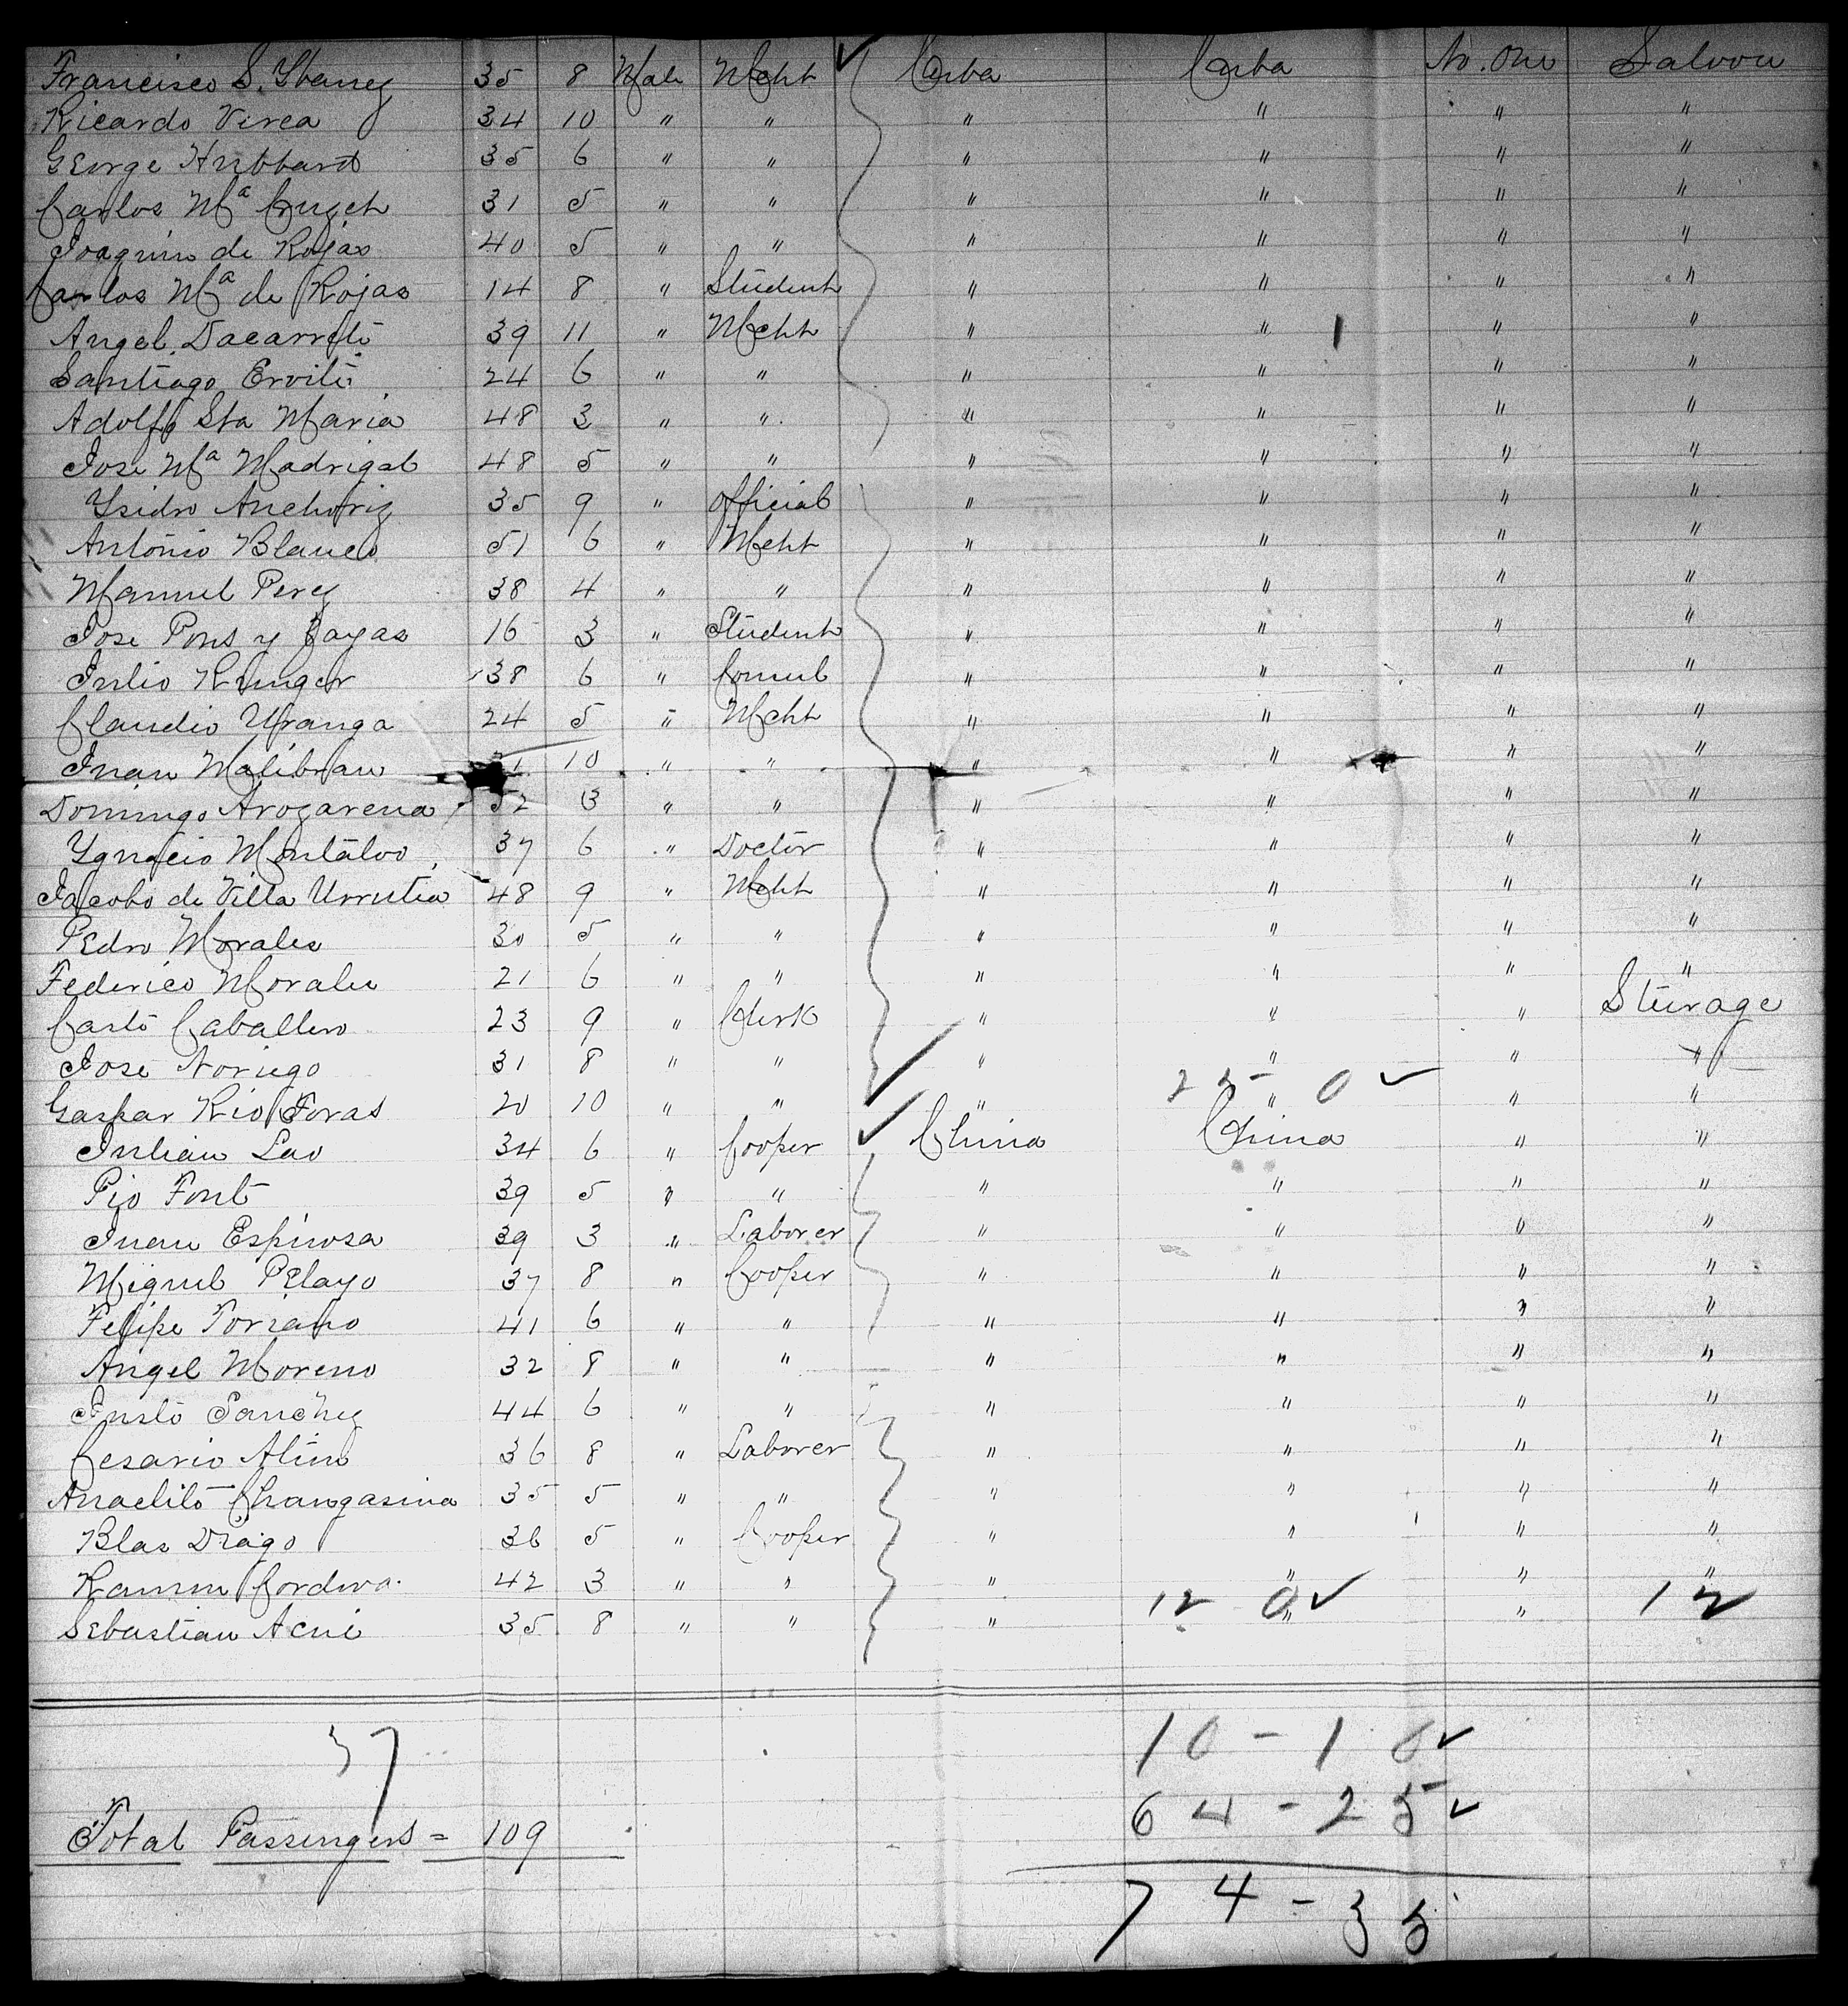 Francisco S. Ybanez 35 8 Male Mcht Cuba Cuba No. One Saloon
Ricardo Virea 34 10 " " " " " "
George Hubbard 35 6 " " " " " "
Carlos Ma 31 5 " " " " " "
Joaquin de Rojas 40 5 " " " " " "
Carlos Ma de Rojas 14 8 " Student " " " "
Angel Dacarreti 39 11 " Mcht " " " "
Santiago Erviti 24 6 " " " " " "
Adolfo Sta Maria 48 3 " " " " " "
Jose Ma Madrigal 48 5 " " " " " "
Ysidro Anchoriz 35 9 " Official " " " "
Antonio Blanco 51 6 " Mcht " " " "
Manuel Perez 38 4 " " " " " "
Jose Pons y Zayas 16 3 " Student " " " "
Julio Kruger 38 6 " Consul " " " "
Claudio Uranga 24 5 " Mcht " " " "
Juan Malibran 10 " " " " " "
Domingo Arozarena 52 3 " " " " " "
Ygnacio Montalvo 37 6 " Doctor " " " "
Jacobo de Villa Urrutia 48 9 " Mcht " " " "
Pedro Morales 30 5 " " " " " "
Federico Morales 21 6 " " " " " "
Casto Caballero 23 9 " Clerk " " " Steerage
Jose Noriego 31 8 " " " " " "
25 - 0
Gaspar Rio Foras 20 10 " " " " " "
Julian Lao 34 6 " Cooper China China " "
Pio Font 39 5 " " " " " "
Juan Espinosa 39 3 " Laborer " " " "
Miguel Pelayo 37 8 " Cooper " " " "
Felipe Toriano 41 6 " " " " " "
Angel Moreno 32 8 " " " " " "
Justo Sanchez 44 6 " " " " " "
Cesario Alim 36 8 " Laborer " " " "
Anacleto Changasina 35 5 " " " " " "
Blas Drago 36 5 " Cooper " " " "
Ramon Cordova 42 3 " " " " " "
12 0 12
Sebastian Acui 35 8 " " " " "
37 10 - 10
64 - 25
Total Passengers = 109
74 - 35